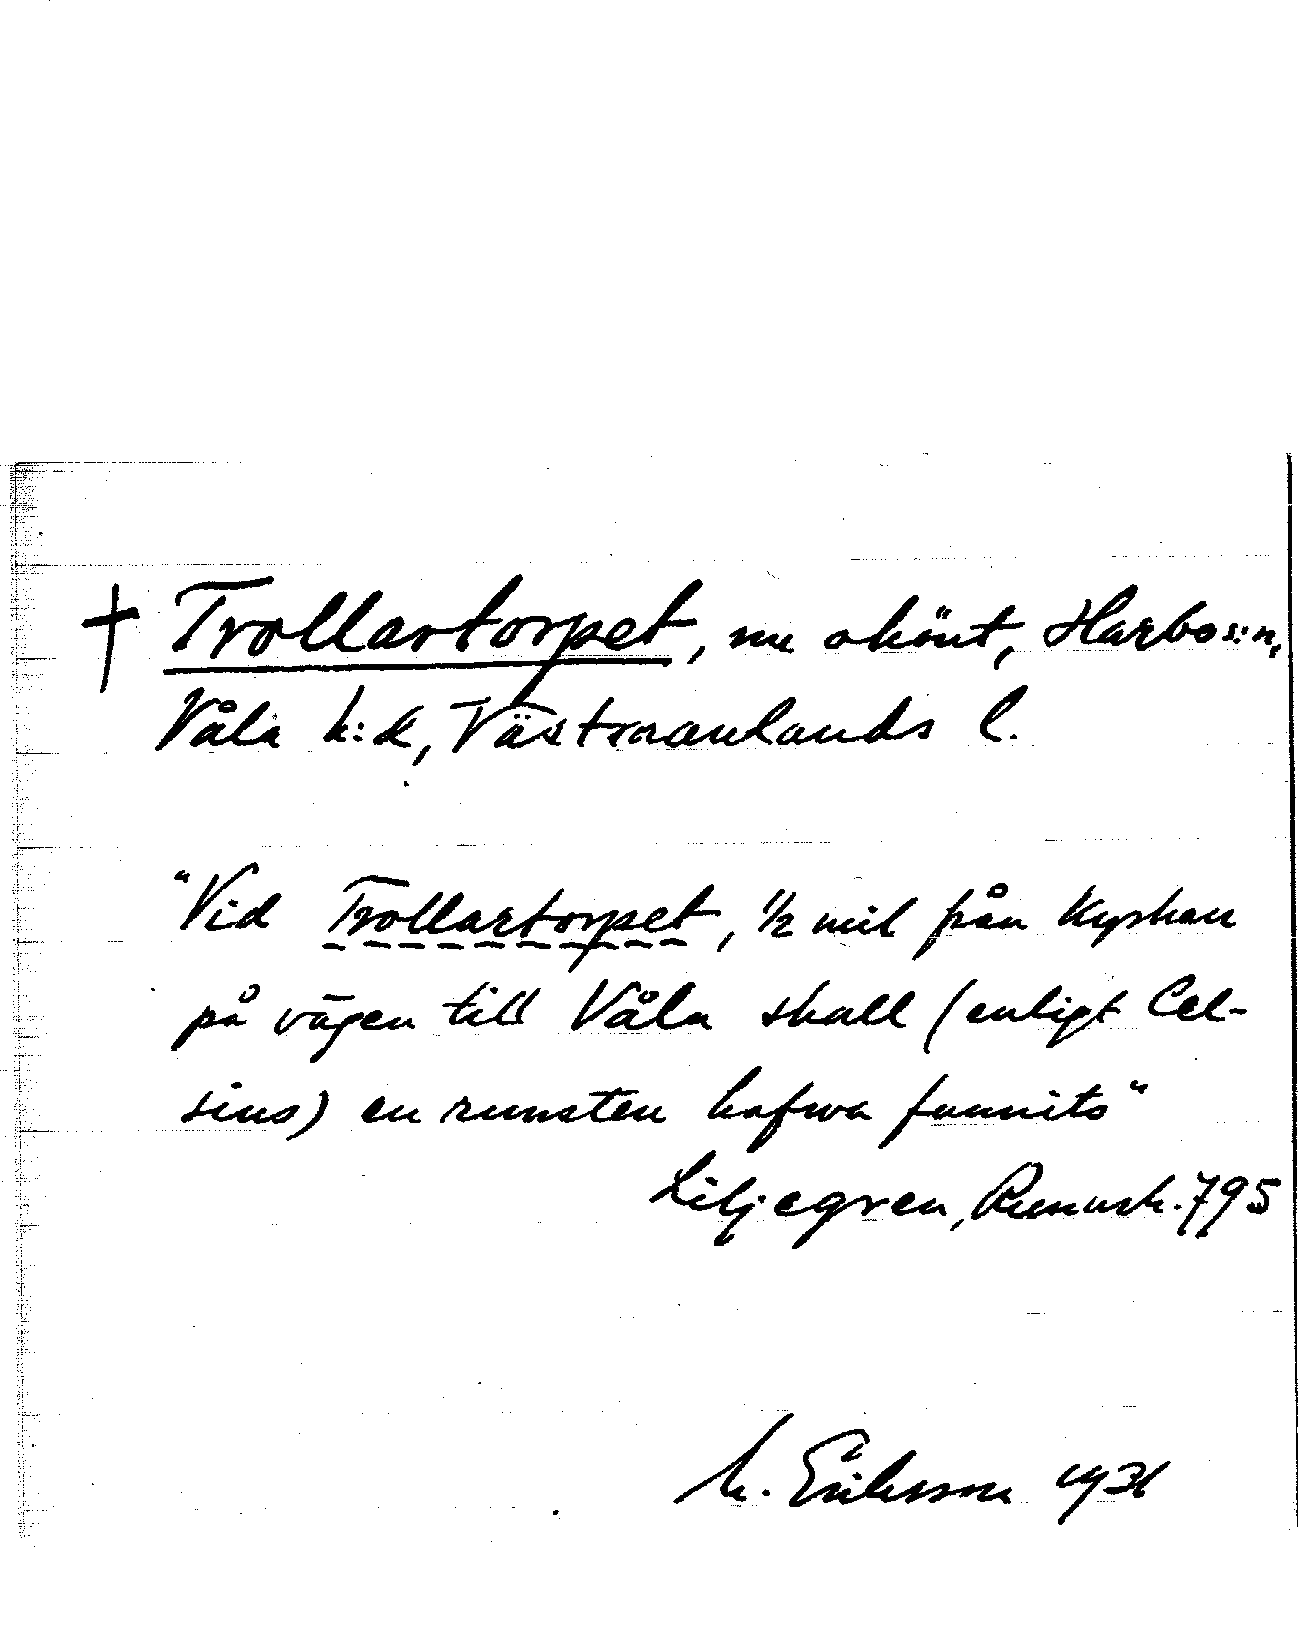 † Trollartorpet, nu okänt, Harbo s:n,
Våla h:d, Västmanlands l.
"Vid Trollartorpet, 1/2 mil från Kyrkan
på vägen till Våla skall (enligt Cel-
sius) en runsten hafwa funnits"
Liljegren, Runurk. 795
M. Eriksson 1931